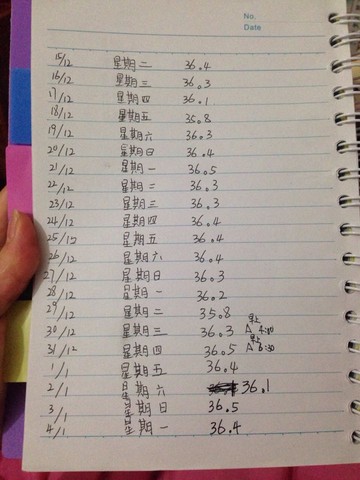 No.
Date
15/12 星期二 36.4
16/12 星期三 36.3
17/12 星期四 36.1
18/12 星期五 35.8
19/12 星期六 36.3
20/12 星期日 36.4
21/12 星期一 36.5
22/12 星期二 36.3
23/12 星期三 36.3
24/12 星期四 36.4
25/12 星期五 36.4
26/12 星期六 36.4
27/12 星期日 36.3
28/12 星期一 36.2
29/12 星期二 35.8
30/12 星期三 36.3 早上 4:00
31/12 星期四 36.5 早上 6:30
1/1 星期五 36.4
2/1 星期六 36.1
3/1 星期日 36.5
4/1 星期一 36.4